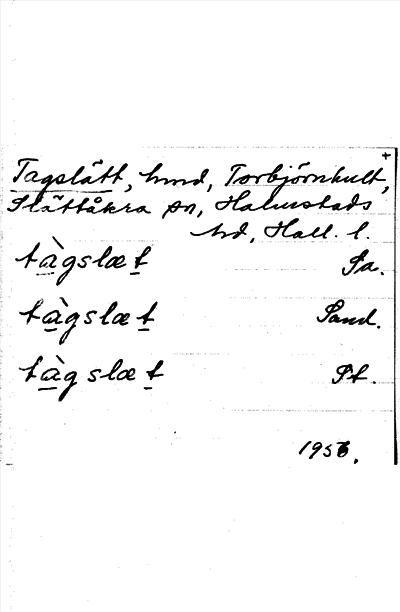 +
Tagslätt, hmd, Torbjörnhult,
Slättåkra sn, Halmstads
hd, Hall. l.
tàgslæt Sa.
tàgslæt Sand.
tàgslæt St.
1956.